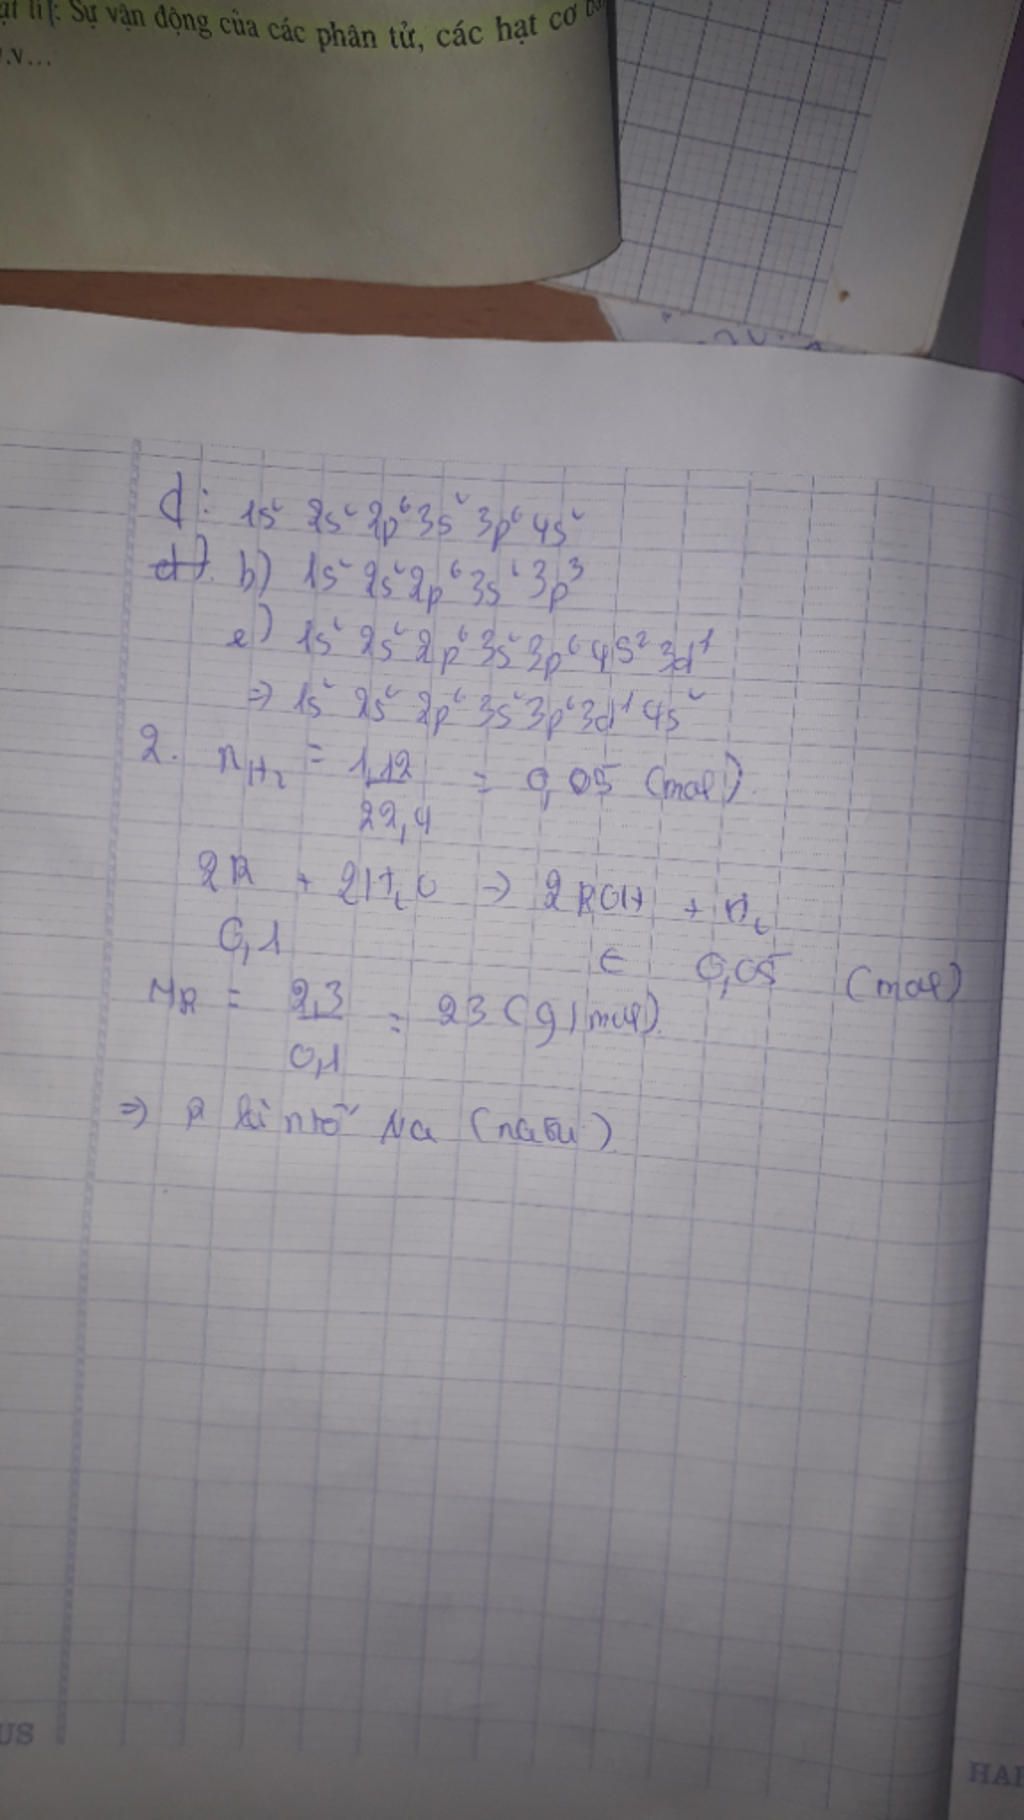 ật lí]: Sự vận động của các phân tử, các hạt cơ
v.v...
d: 1s² 2s² 2p⁶ 3s² 3p⁶ 4s²
b) 1s² 2s² 2p⁶ 3s² 3p³
e) 1s² 2s² 2p⁶ 3s² 3p⁶ 4s² 3d¹
=> 1s² 2s² 2p⁶ 3s² 3p⁶ 3d¹ 4s²
2. nH₂ = 1,12/22,4 = 0,05 (mol).
2R + 2H₂O → 2ROH + H₂
0,1 ← 0,05 (mol)
MR = 2,3/0,1 = 23 (g/mol).
=> R là nntố Na (natri).
US
HAP